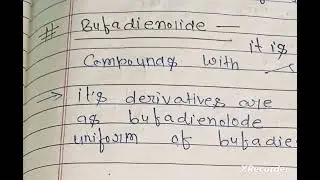 # Bufadienolide —
it is
Compounds with
→ it's derivatives are
as bufadienolode
uniform of bufadie
XRecorder